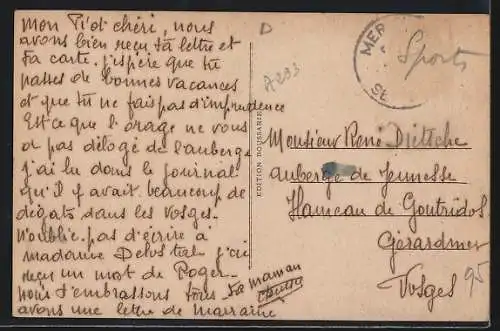 Mon P'tiot chéri, nous
avons bien reçu ta lettre et
ta carte. j'espère que tu
passes de bonnes vacances
et que tu ne fais pas d'imprudence
Est ce que l'orage ne vous
a pas délogé de l'auberge
j'ai lu dans le journal
qu'il y avait beaucoup de
dégats dans les Vosges.
N'oublie pas d'écrire à
madame j'ai
reçu un mot de Roger.
nous t'embrassons tous ta maman
avons une lettre de marraine
D
A293
EDITION DOUSSARIE
MER
St
Sports
Monsieur René Dietsche
auberge de jeunesse
Hameau de Goutridos
Gérardmer
Vosges
95